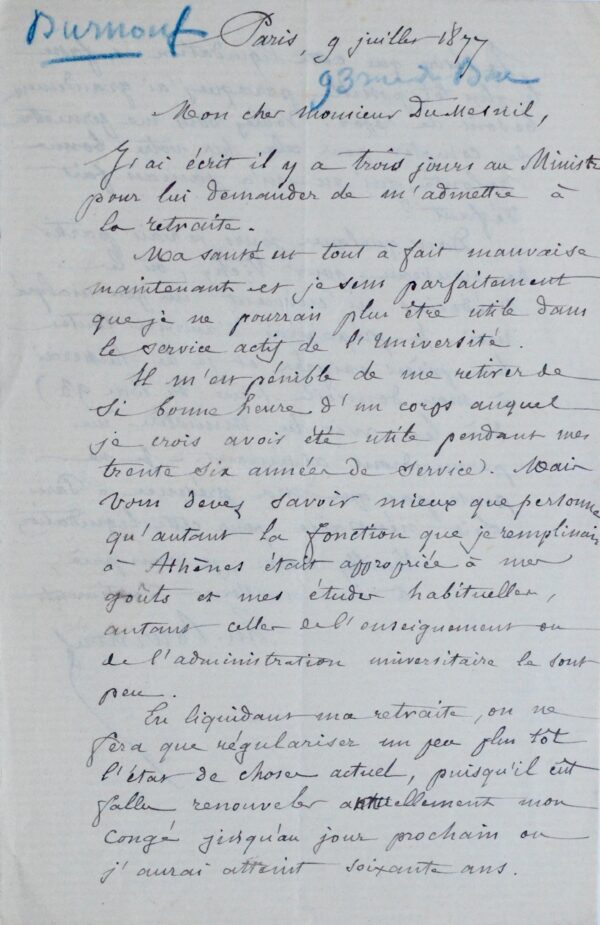 Burnouf
Paris, 9 juillet 1877
93 rue du Bac
Mon cher monsieur DuMesnil,
J'ai écrit il y a trois jours au Ministre
pour lui demander de m'admettre à
la retraite.
Ma santé est tout à fait mauvaise
maintenant et je sens parfaitement
que je ne pourrais plus être utile dans
le service actif de l'Université.
Il m'est pénible de me retirer de
si bonne heure d'un corps auquel
je crois avoir été utile pendant mes
trente six années de service. Mais
vous devez savoir mieux que personne
qu'autant la fonction que je remplissais
à Athènes était appropriée à mes
goûts et mes études habituelles,
autant celles de l'enseignement ou
de l'administration universitaire le sont
peu.
En liquidant ma retraite, on ne
fera que régulariser un peu plus tôt
l'état de choses actuel, puisqu'il eût
fallu renouveler annuellement mon
congé jusqu'au jour prochain où
j'aurai atteint soixante ans.